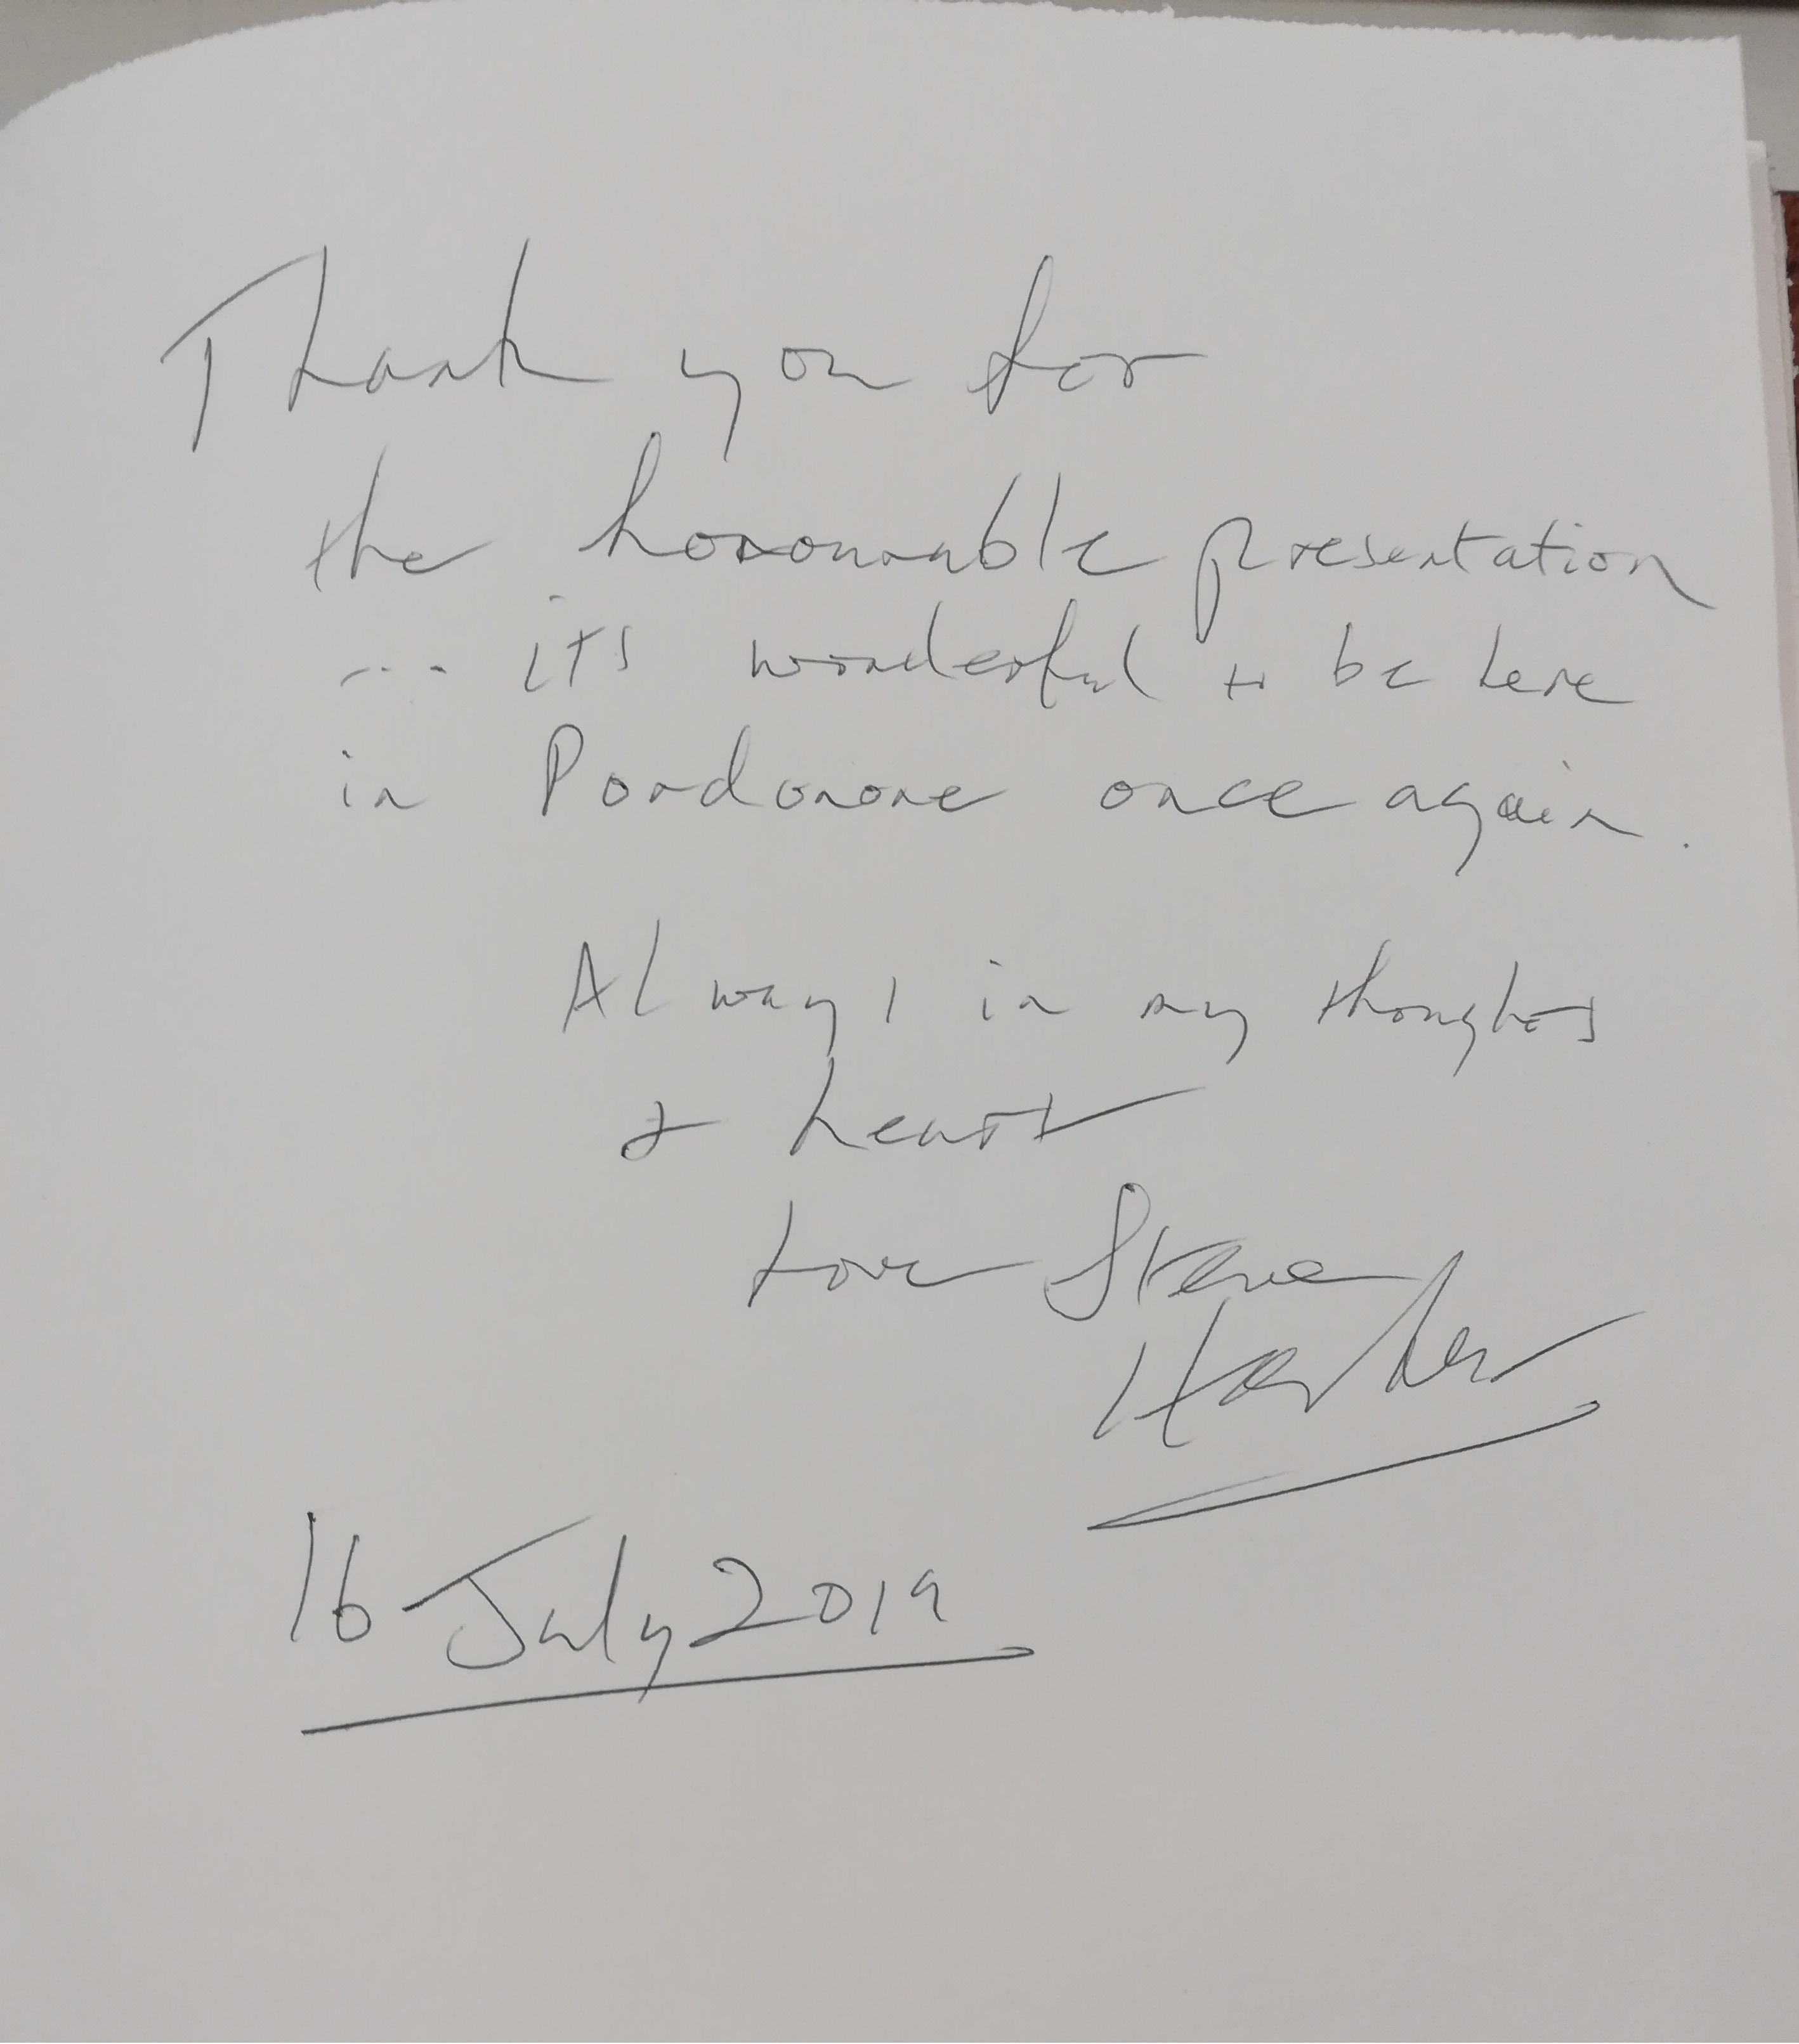 Thank you for
the honourable presentation
... its wonderful to be here
in Pordonone once again.
Always in my thoughts
& heart
Love Steve
Harley
16 July 2019